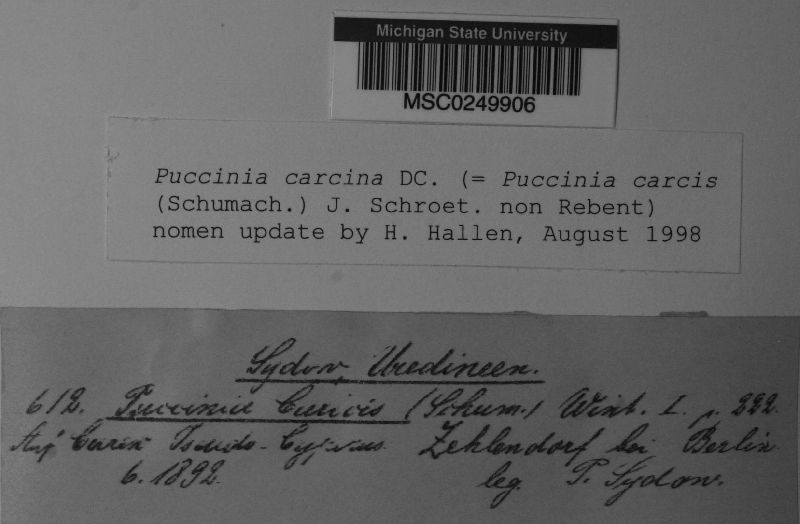 Michigan State University
MSC0249906
Puccinia carcina DC. (= Puccinia carcis
(Schumach.) J. Schroet. non Rebent)
nomen update by H. Hallen, August 1998
Sydow, Uredineen.
612. Puccinia Caricis (Schum.) Wint. I. p. 222.
Auf Carex Pseudo-Cyperus. Zehlendorf bei Berlin
6. 1892. leg. P. Sydow.